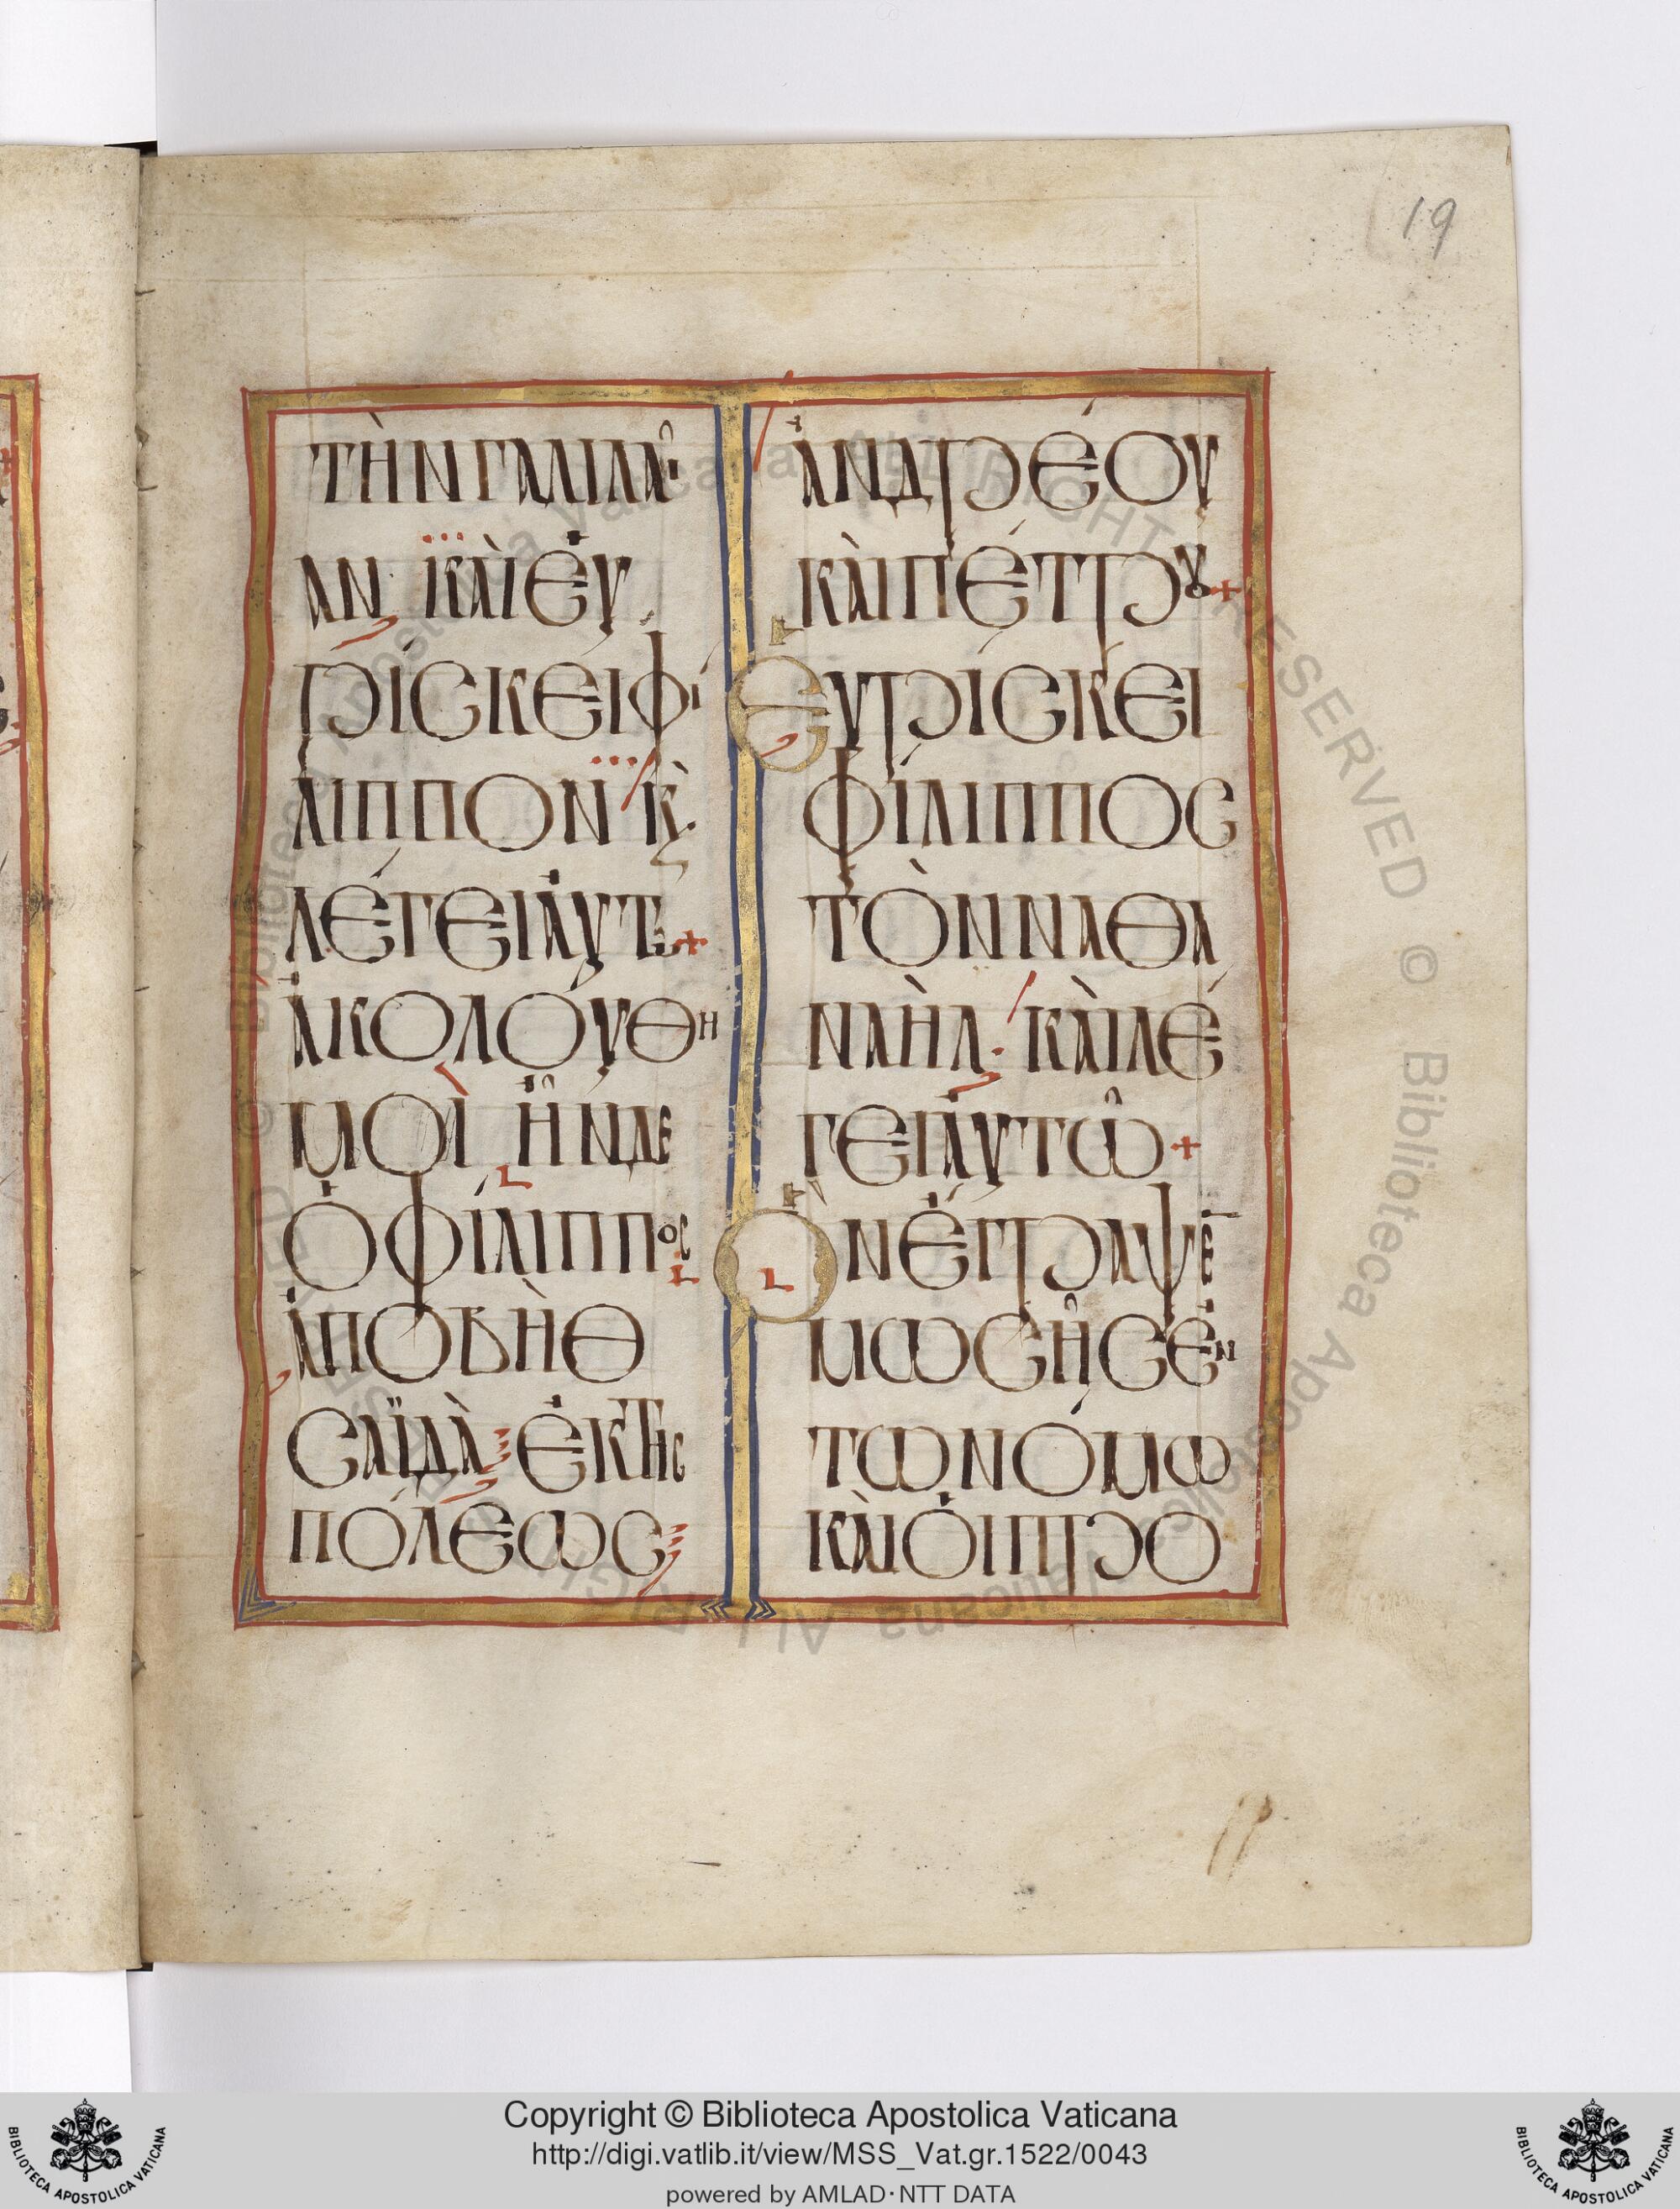 19
ΤῊΝ ΓΑΛΙΛΑῚ
ΑΝ· ΚΑῚ ἘΥ
ΡΊΣΚΕΙ ΦΊ
ΛΙΠΠΟΝ· Κ̀
ΛΈΓΕΙ ἈΥΤΩ +
ἈΚΟΛΟΎΘΗ
ΜΟῚ ἮΝ ΔΕ
Ὁ ΦΊΛΙΠΠΟΣ
ἈΠΟ ΒῊΘ
ΣΑΪΔᾺ ἘΚ ΤΗΣ
ΠΌΛΕΩΣ
ἈΝΔΡΈΟΥ
ΚΑῚ ΠΈΤΡΟΥ +
ἙΥΡΊΣΚΕΙ
ΦΊΛΙΠΠΟΣ
ΤῸΝ ΝΑΘΑ
ΝΑῊΛ· ΚΑῚ ΛΈ
ΓΕΙ ἈΥΤΩ͂ +
ὋΝ ἜΓΡΑΨΕ
ΜΩΣΗ͂Σ ἘΝ
ΤΩ ΝΌΜΩ
ΚΑῚ ὉΙ ΠΡΟ
Copyright © Biblioteca Apostolica Vaticana
http://digi.vatlib.it/view/MSS_Vat.gr.1522/0043
powered by AMLAD·NTT DATA
BIBLIOTECA APOSTOLICA VATICANA
BIBLIOTECA APOSTOLICA VATICANA